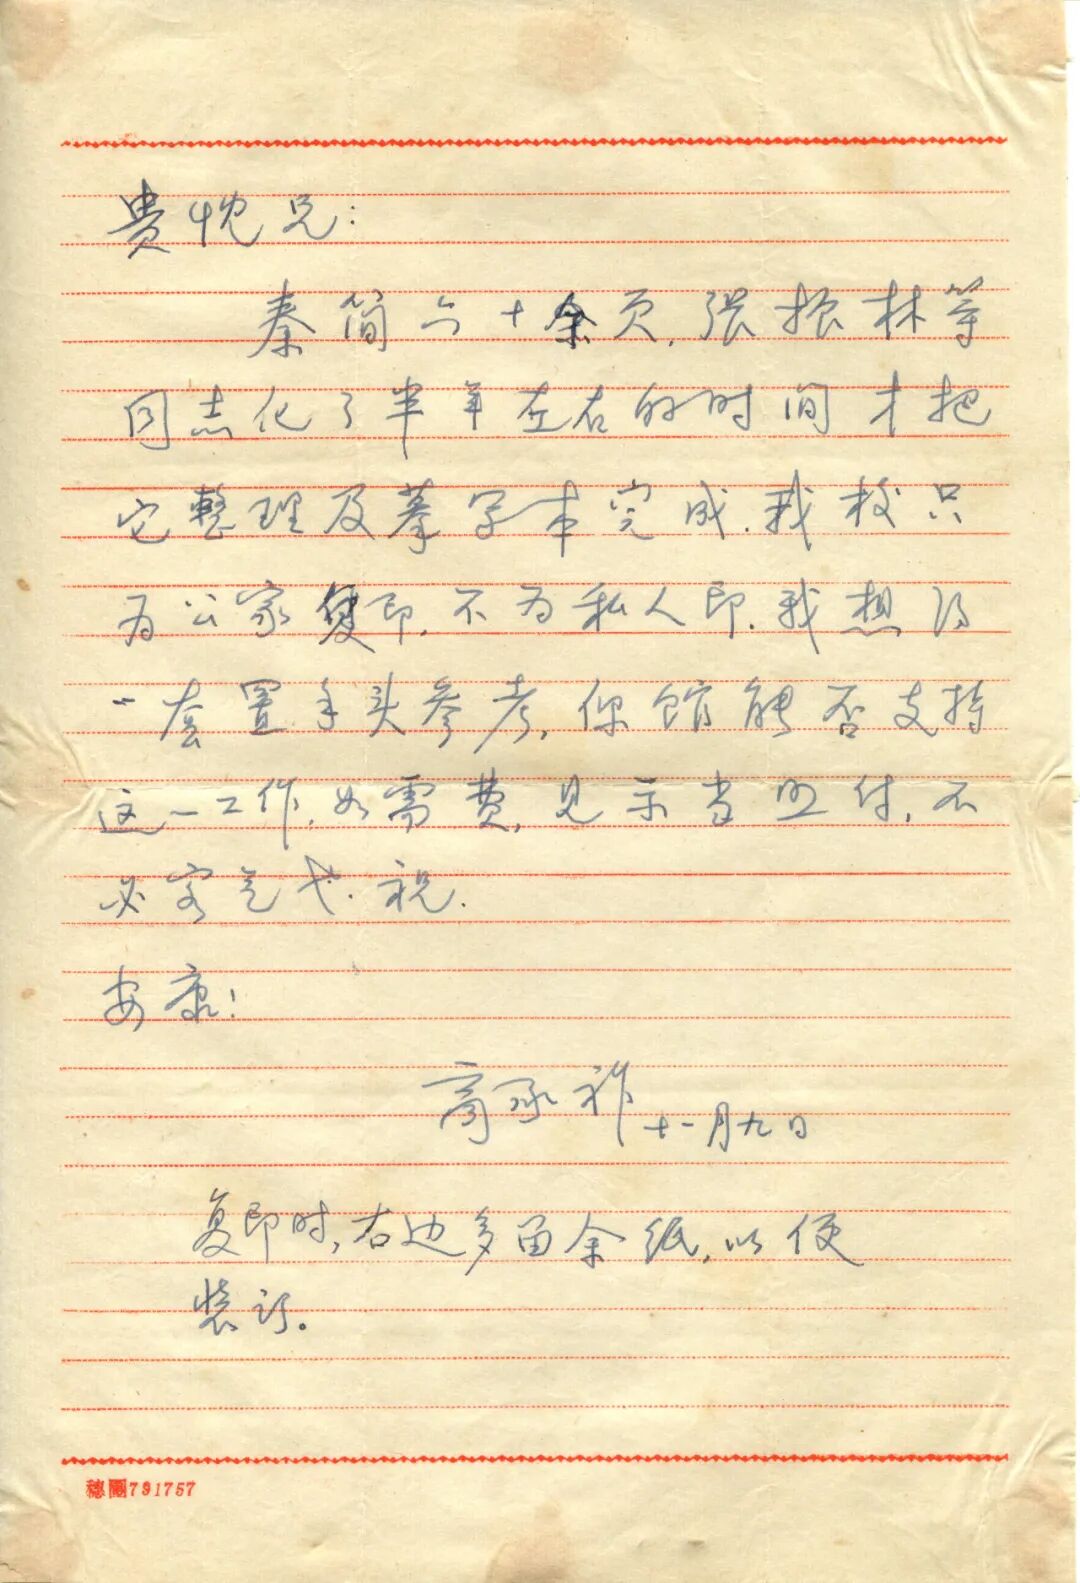 贵忱兄：
秦简六十余页，张振林等
同志化了半年左右的时间才把
它整理及摹字本完成。我校只
为公家复印，不为私人印。我想得
一套置手头参考，你馆能否支持
这一工作，如需费，见示当照付，不
必客气也。祝
安康！
商承祚 十一月九日
复印时，右边多留余纸，以便
装订。
穗团791757